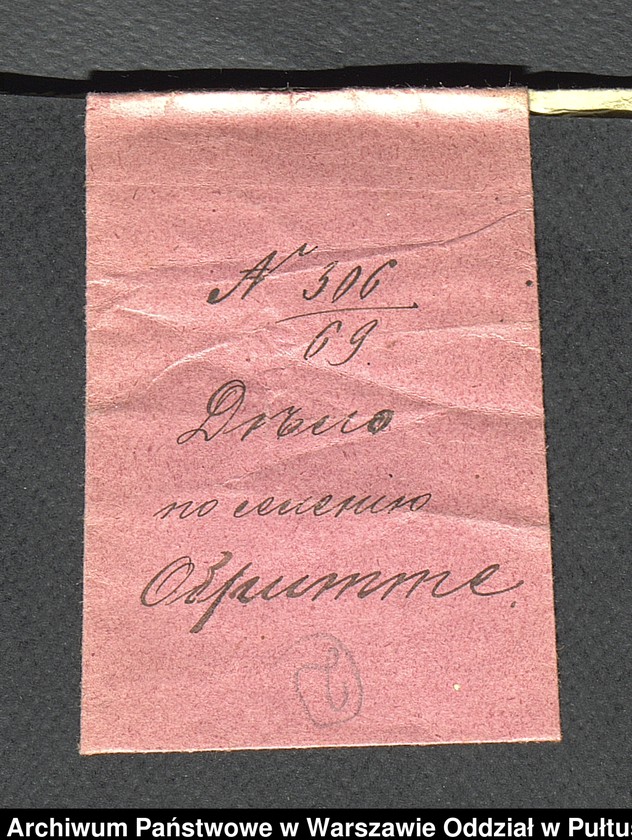 № 306
69.
Дѣло
по селенію
Обритте.
Archiwum Państwowe w Warszawie Oddział w Pułtus